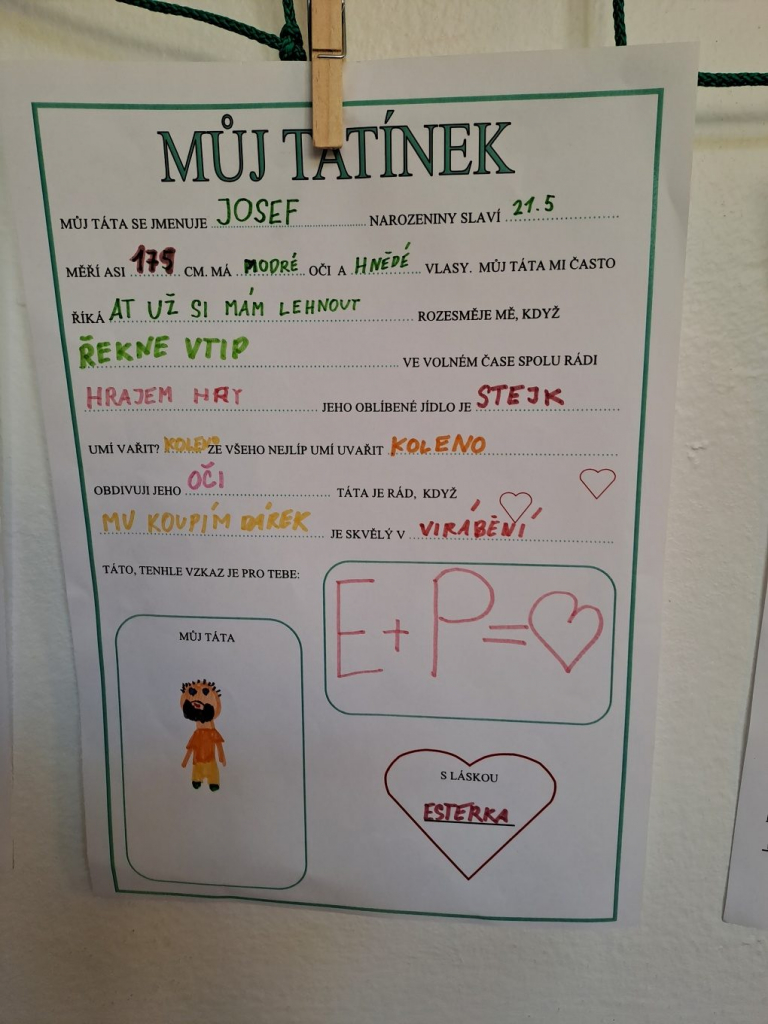 MŮJ TATÍNEK
MŮJ TÁTA SE JMENUJE JOSEF NAROZENINY SLAVÍ 21.5
MĚŘÍ ASI 175 CM. MÁ MODRÉ OČI A HNĚDÉ VLASY. MŮJ TÁTA MI ČASTO
ŘÍKÁ AT UŽ SI MÁM LEHNOUT ROZESMĚJE MĚ, KDYŽ
ŘEKNE VTIP VE VOLNÉM ČASE SPOLU RÁDI
HRAJEM HRY JEHO OBLÍBENÉ JÍDLO JE STEJK
UMÍ VAŘIT? KOLENO ZE VŠEHO NEJLÍP UMÍ UVAŘIT KOLENO
OBDIVUJI JEHO OČI TÁTA JE RÁD, KDYŽ
MU KOUPÍM DÁREK JE SKVĚLÝ V VIRÁBĚNÍ
TÁTO, TENHLE VZKAZ JE PRO TEBE:
E+P=
MŮJ TÁTA
S LÁSKOU
ESTERKA